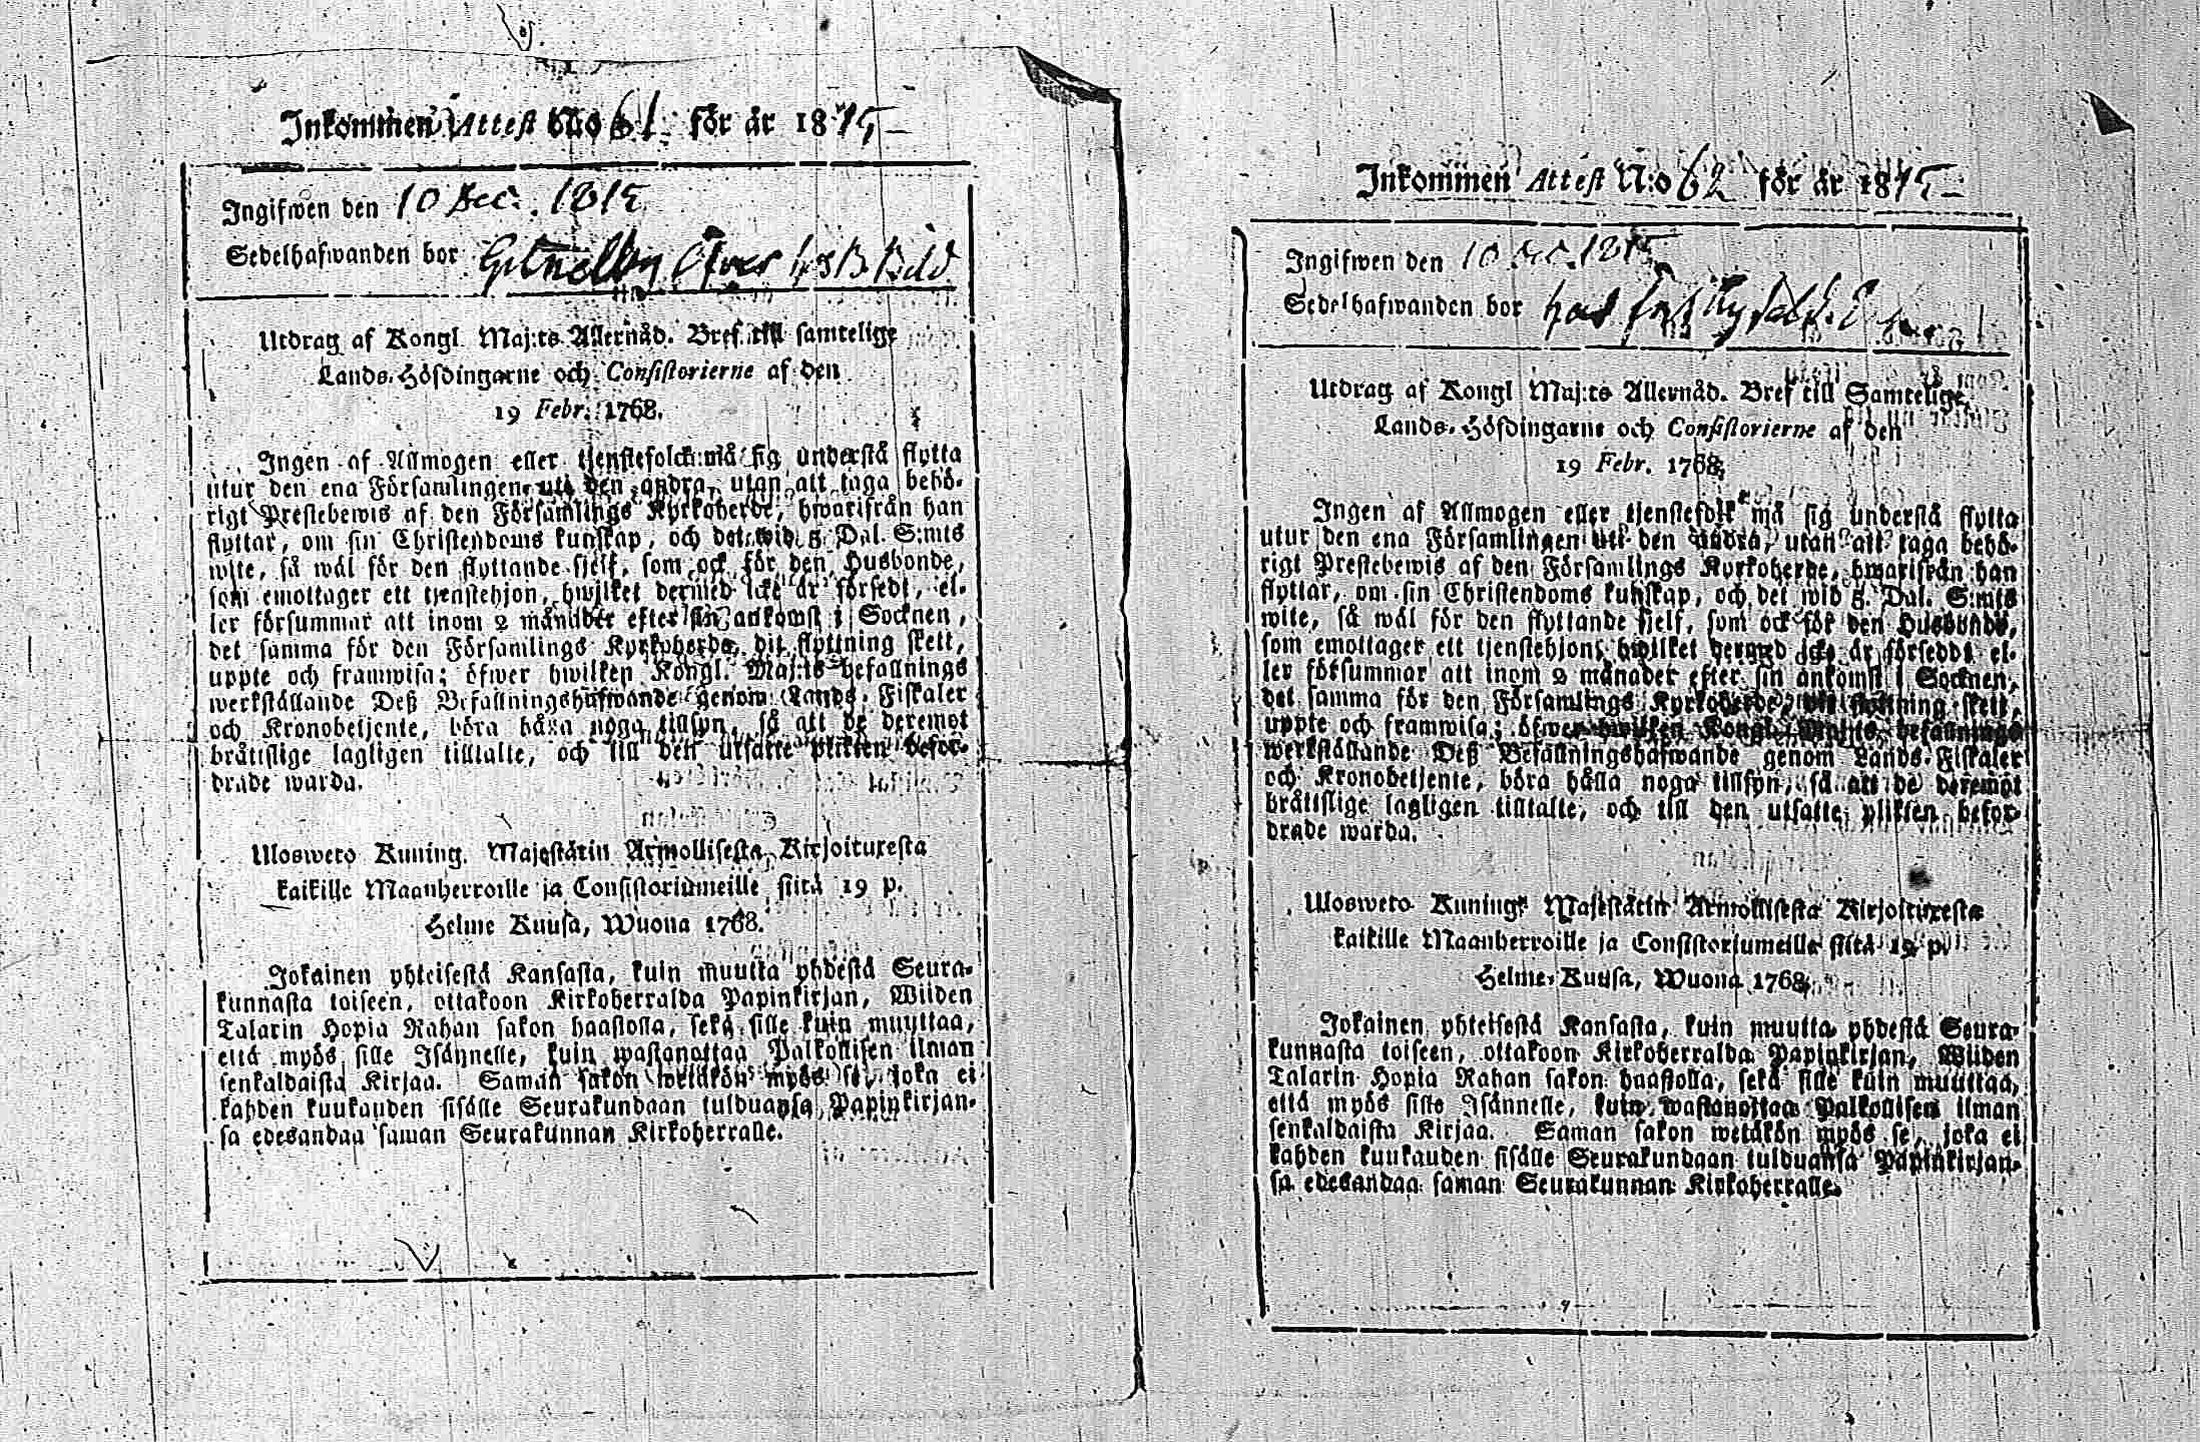 Inkommen Attest N:o 61 för år 1815
Ingifwen den 10 Dec. 1815
Sedelhafwanden bor
Utdrag af Kongl. Maj:ts Allernåd. Bref till samtelige
Lands-Höfdingarne och Consistorierne af den
19 Febr. 1768.
Ingen af Allmogen eller tjenstefolck må sig understå flytta
utur den ena Församlingen uti den andra, utan att taga behö-
rigt Prestebewis af den Församlings Kyrkoherde, hwarifrån han
flyttar, om sin Christendoms kunskap, och det wid 5 Dal. S:mts
wite, så wäl för den flyttande sjelf, som ock för den Husbonde,
som emottager ett tjenstehjon, hwilket dermed icke är försedt, el-
ler försummar att inom 2 månader efter sin ankomst i Socknen,
det samma för den Församlings Kyrkoherde, dit flyttning skett,
uppte och framwisa; öfwer hwilken Kongl. Maj:ts befallnings
werkställande Deß Befallningshafwande genom Lands-Fiskaler
och Kronobetjente, böra hålla noga tillsyn, så att de deremot
bråttslige lagligen tilltalte, och till den utsatte plikten befor-
drade warda.
Ulosweto Kuning. Majestätin Armollisesta Kirjoituxesta
kaikille Maanherroille ja Consistoriumeille siitä 19 p.
Helme Kuusa, Wuona 1768.
Jokainen yhteisestä Kansasta, kuin muutta yhdestä Seura-
kunnasta toiseen, ottakoon Kirkoherralda Papinkirjan, Wiiden
Talarin Hopia Rahan sakon haastolla, sekä sille kuin muuttaa,
että myös sille Isännelle, kuin wastanottaa Palkollisen ilman
senkaldaista Kirjaa. Saman sakon wetäkön myös se, joka ei
kahden kuukauden sisälle Seurakundaan tulduansa Papinkirjan-
sa edesandaa saman Seurakunnan Kirkoherralle.
Inkommen Attest N:o 62 för år 1815
Ingifwen den 10 Dec. 1815
Sedelhafwanden bor
Utdrag af Kongl Maj:ts Allernåd. Bref till Samtelige
Lands-Höfdingarne och Consistorierne af den
19 Febr. 1768.
Ingen af Allmogen eller tjenstefolk må sig understå flytta
utur den ena Församlingen uti den andra, utan att taga behö-
rigt Prestebewis af den Församlings Kyrkoherde, hwarifrån han
flyttar, om sin Christendoms kunskap, och det wid 5 Dal. S:mts
wite, så wäl för den flyttande sjelf, som ock för den Husbonde,
som emottager ett tjenstehjon, hwilket dermed icke är försedt, el-
ler försummar att inom 2 månader efter sin ankomst i Socknen,
det samma för den Församlings Kyrkoherde, dit flyttning skett,
uppte och framwisa; öfwer hwilken Kongl. Maj:ts befallnings
werkställande Deß Befallningshafwande genom Lands-Fiskaler
och Kronobetjente, böra hålla noga tillsyn, så att de deremot
bråttslige lagligen tilltalte, och till den utsatte plikten befor-
drade warda.
Ulosweto Kuning. Majestätin Armollisesta Kirjoituxesta
kaikille Maanherroille ja Consistoriumeille siitä 19 p.
Helme-Kuusa, Wuona 1768.
Jokainen yhteisestä Kansasta, kuin muutta yhdestä Seura-
kunnasta toiseen, ottakoon Kirkoherralda Papinkirjan, Wiiden
Talarin Hopia Rahan sakon haastolla, sekä sille kuin muuttaa,
että myös sille Isännelle, kuin wastanottaa Palkollisen ilman
senkaldaista Kirjaa. Saman sakon wetäkön myös se, joka ei
kahden kuukauden sisälle Seurakundaan tulduansa Papinkirjan-
sa edesandaa saman Seurakunnan Kirkoherralle.